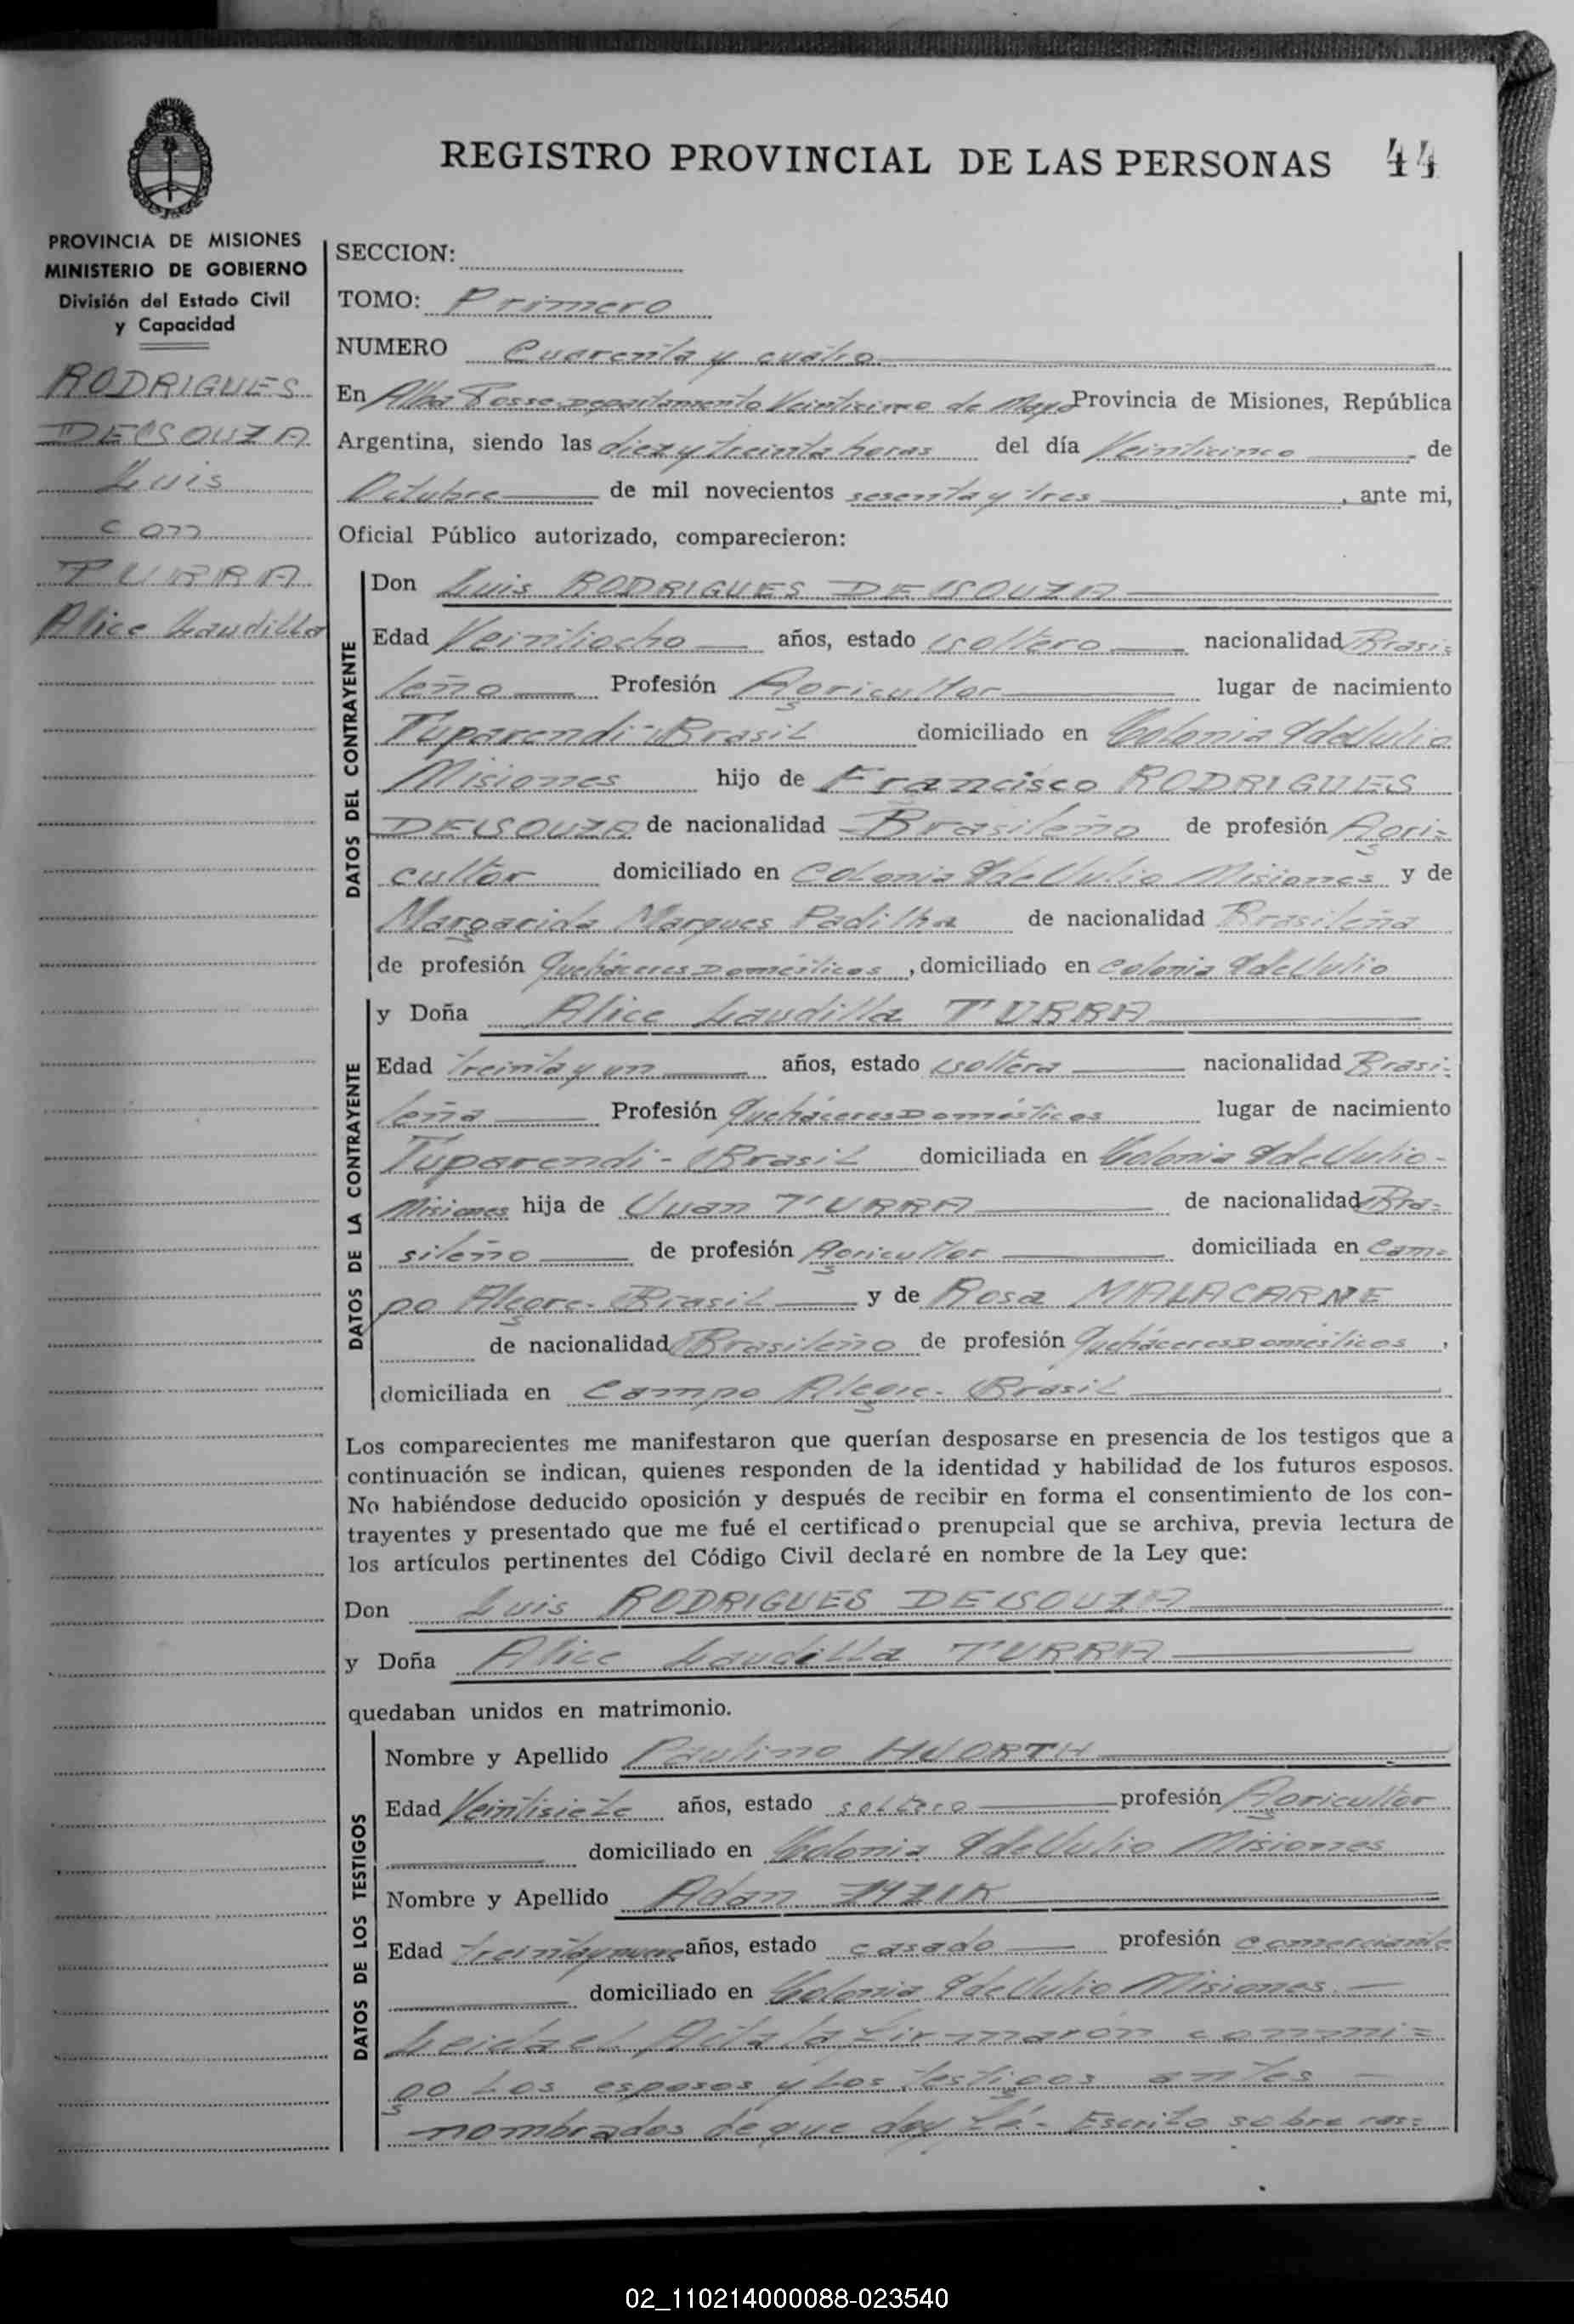 REGISTRO PROVINCIAL DE LAS PERSONAS 44
PROVINCIA DE MISIONES
MINISTERIO DE GOBIERNO
División del Estado Civil
y Capacidad
RODRIGUES
DE SOUZA
Luis
con
TURRA
Alice Laudilla
SECCION:
TOMO: Primero
NUMERO Cuarenta y cuatro
En Alba Posse Departamento Veinticinco de Mayo Provincia de Misiones, República
Argentina, siendo las diez y treinta horas del día Veinticinco de
Octubre de mil novecientos sesenta y tres, ante mi,
Oficial Público autorizado, comparecieron:
DATOS DEL CONTRAYENTE
Don Luis RODRIGUES DE SOUZA
Edad Veintiocho años, estado soltero nacionalidad Brasi=
leño Profesión Agricultor lugar de nacimiento
Tuparendi-Brasil domiciliado en Colonia 9 de Julio
Misiones hijo de Francisco RODRIGUES
DE SOUZA de nacionalidad Brasileño de profesión Agri=
cultor domiciliado en Colonia 9 de Julio Misiones y de
Margarida Marques Padilha de nacionalidad Brasileña
de profesión Queháceres Domésticos, domiciliado en Colonia 9 de Julio
DATOS DE LA CONTRAYENTE
y Doña Alice Laudilla TURRA
Edad treinta y un años, estado soltera nacionalidad Brasi=
leña Profesión Queháceres Domésticos lugar de nacimiento
Tuparendi-Brasil domiciliada en Colonia 9 de Julio-
Misiones hija de Juan TURRA de nacionalidad Bra=
sileño de profesión Agricultor domiciliada en Cam=
po Alegre-Brasil y de Rosa MALACARNE
de nacionalidad Brasileño de profesión Queháceres Domésticos,
domiciliada en Campo Alegre-Brasil
Los comparecientes me manifestaron que querían desposarse en presencia de los testigos que a
continuación se indican, quienes responden de la identidad y habilidad de los futuros esposos.
No habiéndose deducido oposición y después de recibir en forma el consentimiento de los con-
trayentes y presentado que me fué el certificado prenupcial que se archiva, previa lectura de
los artículos pertinentes del Código Civil declaré en nombre de la Ley que:
Don Luis RODRIGUES DE SOUZA
y Doña Alice Laudilla TURRA
quedaban unidos en matrimonio.
DATOS DE LOS TESTIGOS
Nombre y Apellido Paulino HUORTH
Edad Veintisiete años, estado soltero profesión Agricultor
domiciliado en Colonia 9 de Julio Misiones
Nombre y Apellido Adan
Edad treinta y nueve años, estado casado profesión comerciante
domiciliado en Colonia 9 de Julio Misiones.
Leida el Acta la firmaron conmi=
go los esposos y los testigos antes
nombrados de que doy fé- Escrito sobre ras=
02_110214000088-023540